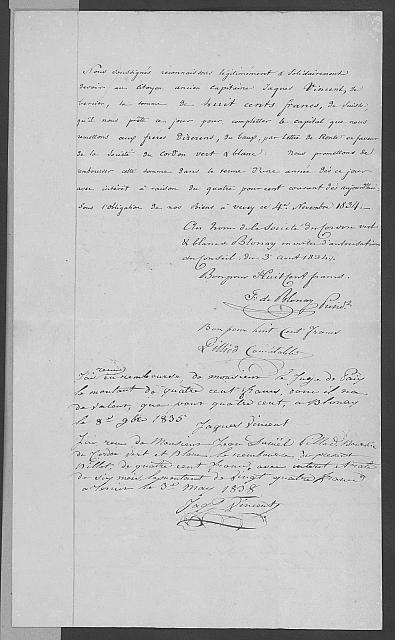 Nous soussignés reconnaissons légitimement & solidairement
devoir au citoyen ancien capitaine Jaques Vincent, de
la somme de huit cents francs, de Suisse,
qu'il nous prête ce jour pour completter le capital que nous
remettons aux freres Diserens, de par lettre de Rente en faveur
de la Société du Cordon vert & blanc. Nous promettons de
rembourser cette somme dans le terme d'une année dès ce jour
avec intérêt à raison du quatre pour cent courant dès aujourd'hui
Sous l'obligation de nos biens à Vevey ce 4e. Novembre 1834.
Au Nom de la Société du Cordon vert
& blanc à Blonay en vertu d'autorisation
du Conseil, du 3 aout 1834.
Bon pour Huit Cent francs.
F. de Blonay Présdt.
Bon pour huit Cent francs
Pilliod
reçu
J'ai en rembourse de monsieur le Juge de Paix
le montant de quatre cent francs, donc il n'a
de valeur, que pour quatre cent, à Blonay
le 8e. 9bre 1835
Jaques Vincent
J'ai recu de Monsieur Jean Daniel
du Cordon Vert et Blanc, le remboursement du present
Billet, de quatre cent francs, avec interet
de Six mois le montant de quatre francs
le 3e. Mars 1838
Jaqs. Vincent